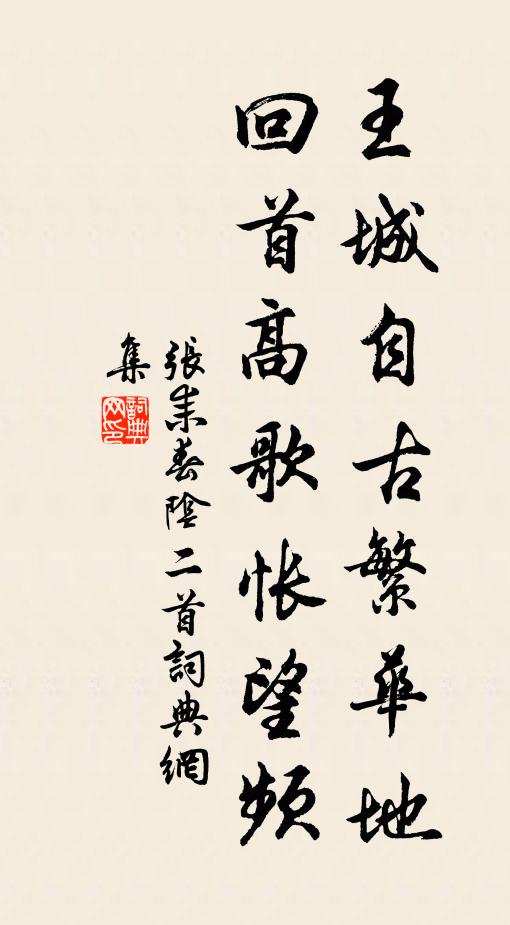 王城自古繁華地
回首高歌悵望頻
張耒春陰二首詞典網
集
詞典網印